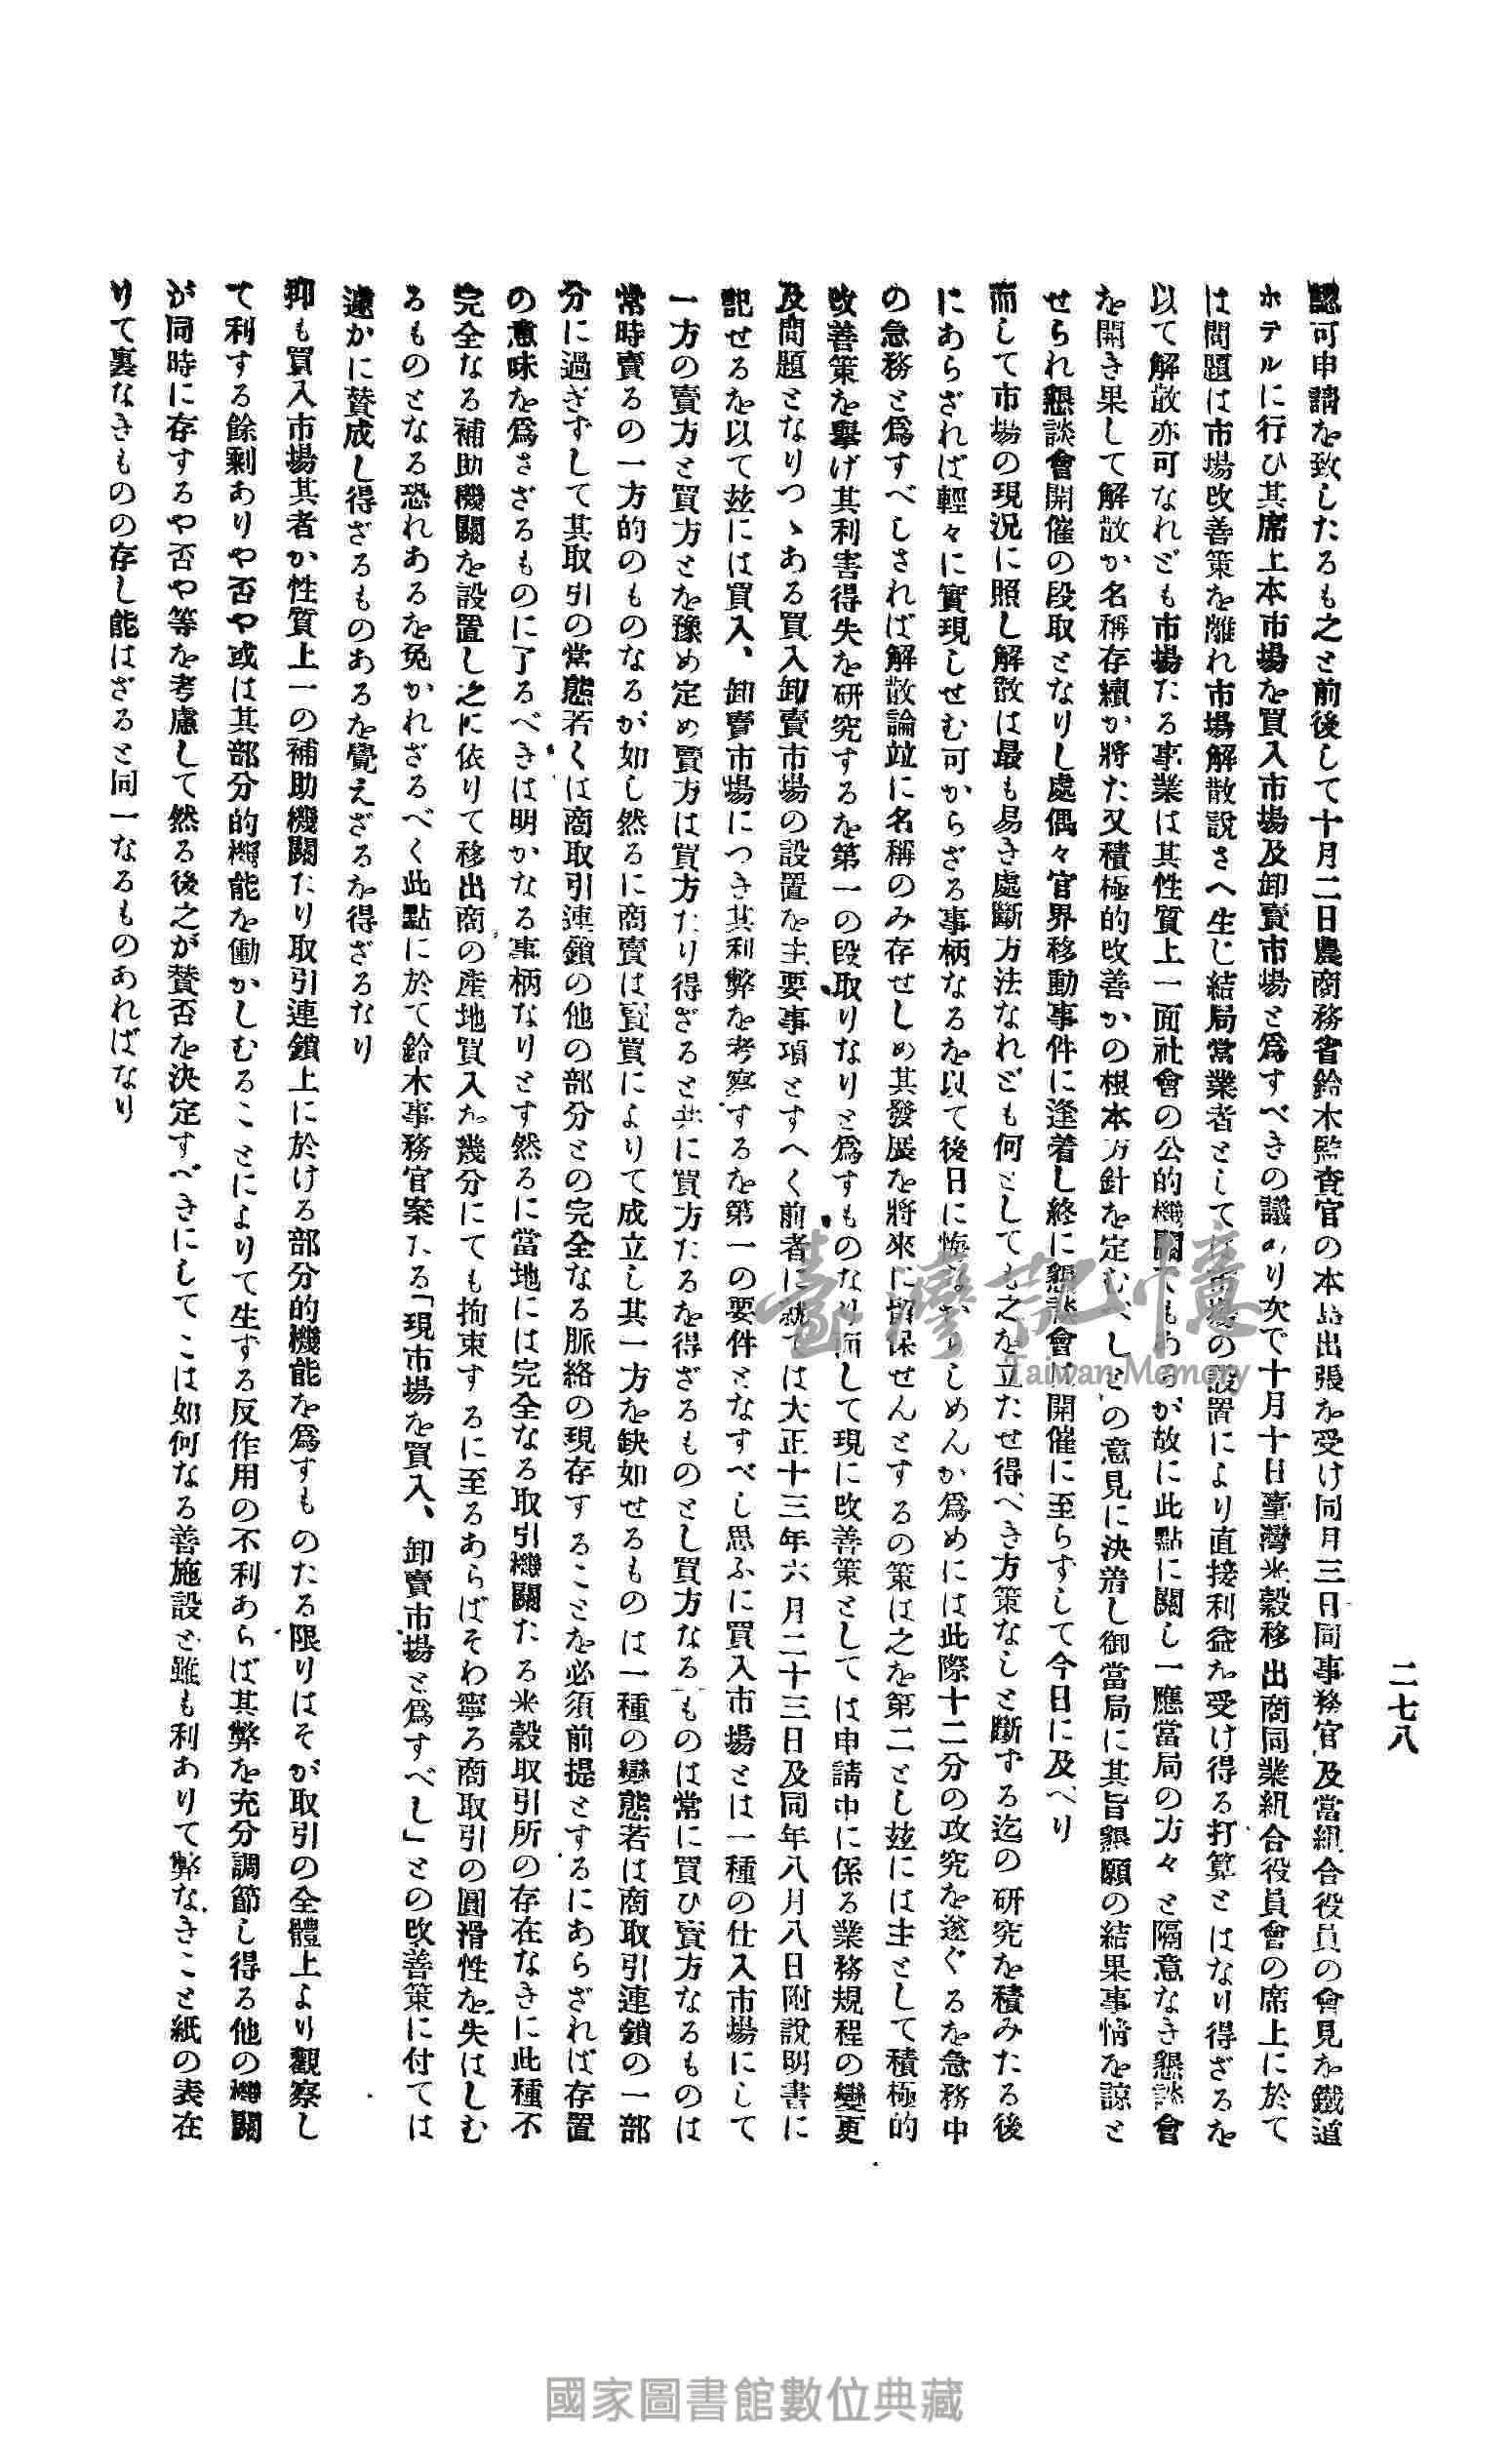 二七八
認可申請を致したるも之と前後して十月二日農商務省鈴木監査官の本島出張を受け同月三日同事務官及當組合役員の會見を鐵道
ホテルに行ひ其席上本市場を買入市場及卸賣市場と爲すべきの議あり次で十月十日臺灣米穀移出商同業組合役員會の席上に於て
は問題は市場改善策を離れ市場解散説さへ生じ結局當業者としては市場の設置により直接利益を受け得る打算とはなり得ざるを
以て解散亦可なれども市場たる事業は其性質上一面社會の公的機關でもあるが故に此點に關し一應當局の方々と隔意なき懇談會
を開き果して解散か名稱存續か將た又積極的改善かの根本方針を定むべしとの意見に決着し御當局に其旨懇願の結果事情を諒と
せられ懇談會開催の段取となりし處偶々官界移動事件に逢着し終に懇談會は開催に至らずして今日に及べり
而して市場の現況に照し解散は最も易き處斷方法なれども何としても之を立たせ得べき方策なしと斷ずる迄の研究を積みたる後
にあらざれば輕々に實現しせむ可からざる事柄なるを以て後日に悔なからしめんか爲めには此際十二分の攻究を遂ぐるを急務中
の急務と爲すべしされば解散論竝に名稱のみ存せしめ其發展を將來に留保せんとするの策は之を第二とし玆には主として積極的
改善策を擧げ其利害得失を研究するを第一の段取りなりと爲すものなり而して現に改善策としては申請中に係る業務規程の變更
及問題となりつゝある買入卸賣市場の設置を主要事項とすへく前者に就ては大正十三年六月二十三日及同年八月八日附説明書に
記せるを以て玆には買入、卸賣市場につき其利弊を考察するを第一の要件となすべし思ふに買入市場とは一種の仕入市場にして
一方の賣方と買方とを豫め定め賣方は買方たり得ざると共に買方たるを得ざるものとし買方なるものは常に買ひ賣方なるものは
常時賣るの一方的のものなるが如し然るに商賣は賣買によりて成立し其一方を缺如せるものは一種の變態若は商取引連鎖の一部
分に過ぎずして其取引の常態若くは商取引連鎖の他の部分との完全なる脈絡の現存することを必須前提とするにあらざれば存置
の意味を爲さざるものに了るべきは明かなる事柄なりとす然るに當地には完全なる取引機關たる米穀取引所の存在なきに此種不
完全なる補助機關を設置し之に依りて移出商の産地買入を幾分にても拘束するに至るあらばそわ寧ろ商取引の圓滑性を失はしむ
るものとなる恐れあるを免かれざるべく此點に於て鈴木事務官案たる「現市場を買入、卸賣市場と爲すべし」との改善策に付ては
遽かに贊成し得ざるものあるを覺えざるを得ざるなり
抑も買入市場其者か性質上一の補助機關たり取引連鎖上に於ける部分的機能を爲すものたる限りはそが取引の全體上より觀察し
て利する餘剩ありや否や或は其部分的機能を働かしむることによりて生する反作用の不利あらば其弊を充分調節し得る他の機關
が同時に存するや否や等を考慮して然る後之が贊否を決定すべきにしてこは如何なる善施設と雖も利ありて弊なきこと紙の表在
りて裏なきものの存し能はざると同一なるものあればなり
臺灣記憶
Taiwan Memory
國家圖書館數位典藏